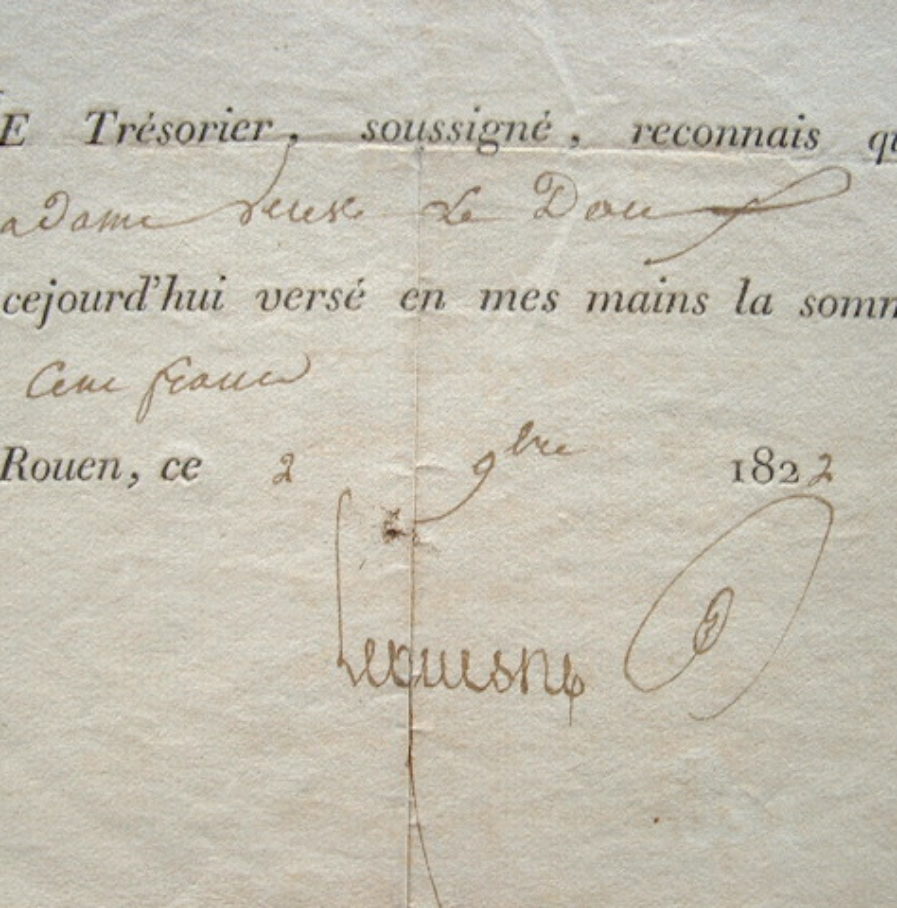 E Trésorier, soussigné, reconnais qu
adame veuve Le Dou
cejourd'hui versé en mes mains la somm
Cent francs
Rouen, ce 2 9bre 1822
Lequesne